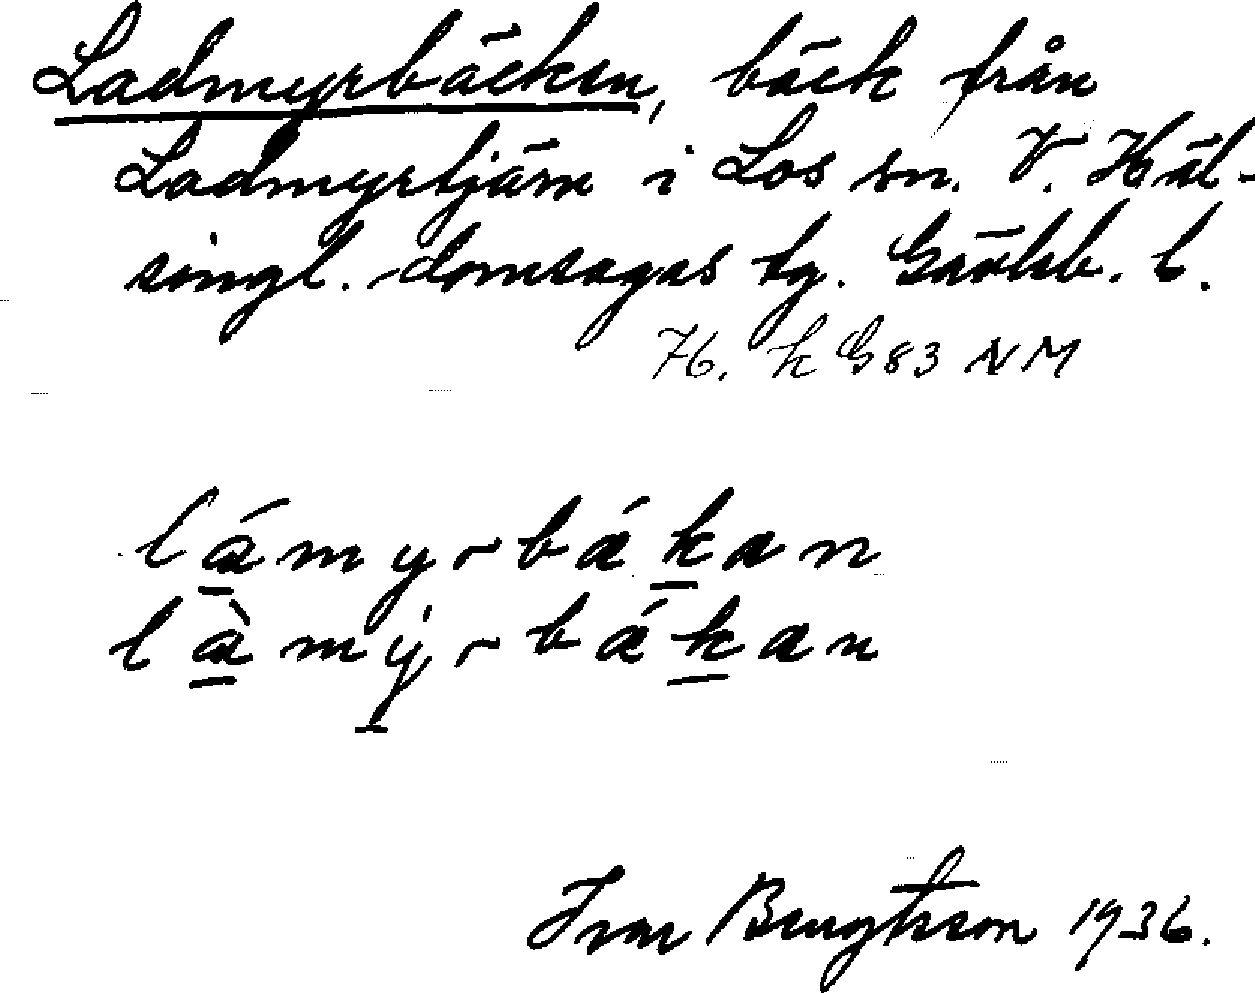 Ladmyrbäcken, bäck från
Ladmyrtjärn i Los sn. V. Häl-
singl. domsagas tg. Gävleb. l.
76. k G83 NM
lámyrbákan
làmýrbákan
Ivar Bengtsson 1936.